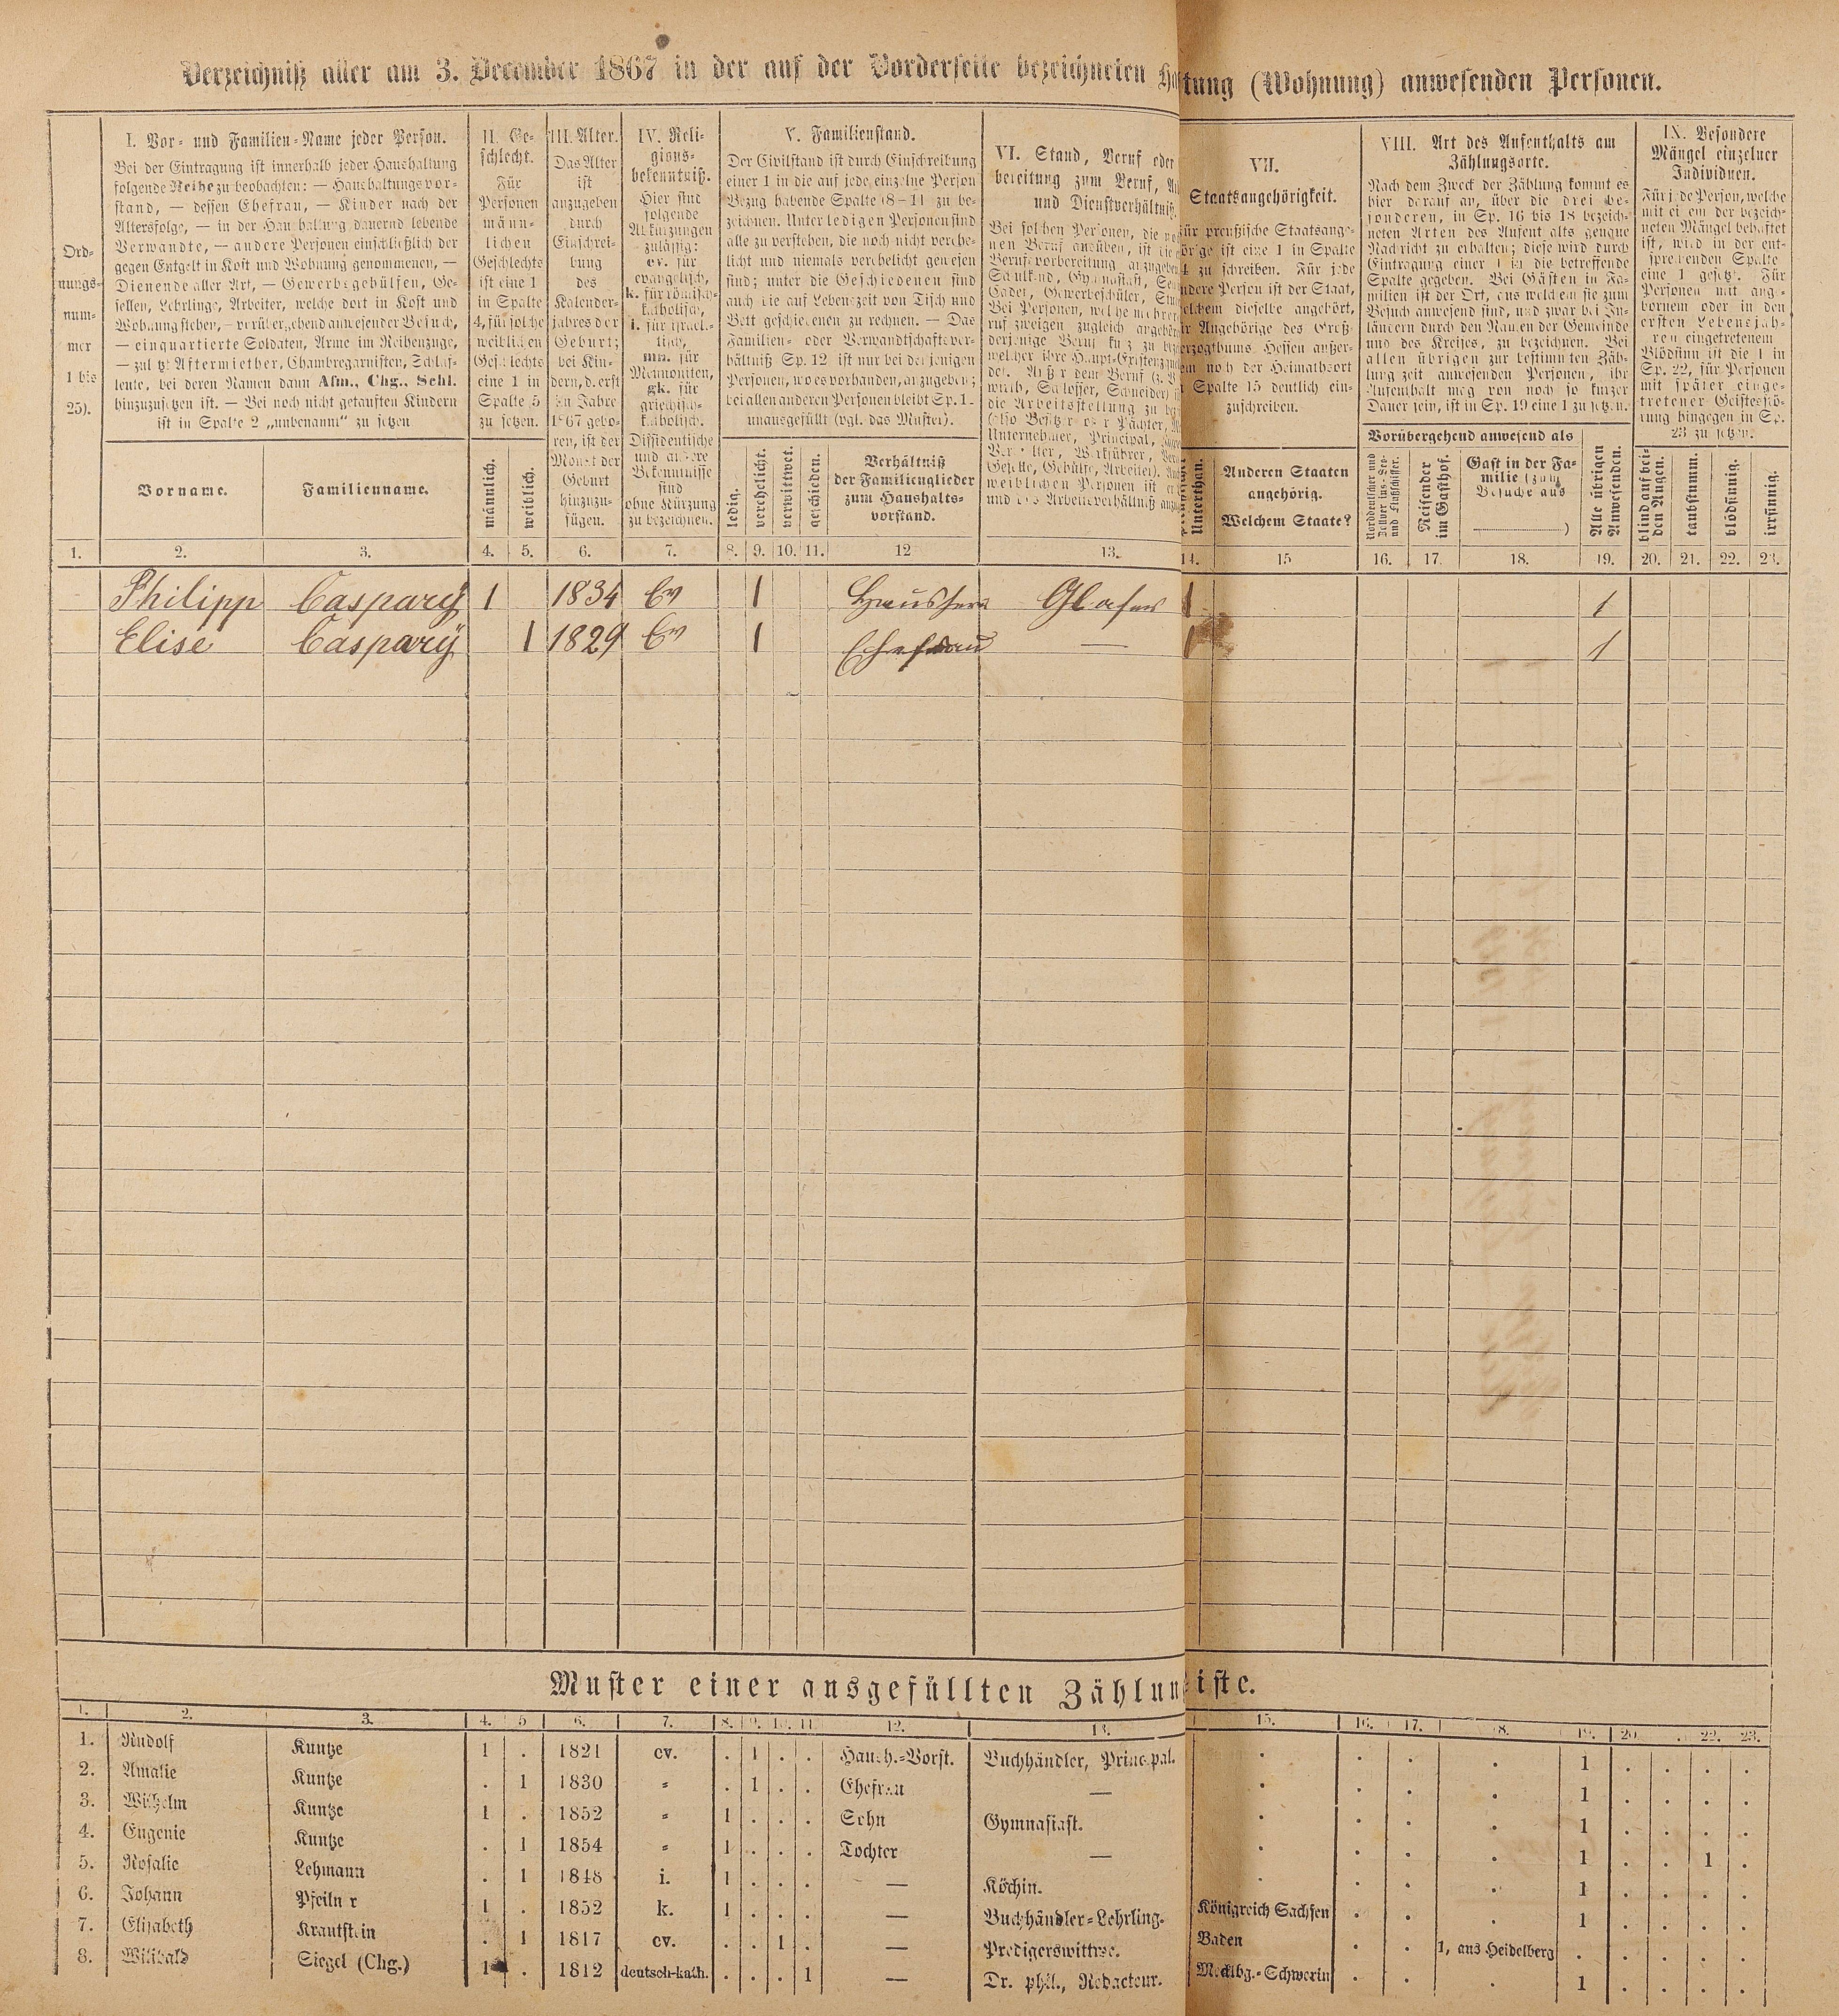 Verzeichniß aller am 3. December 1867 in der auf der Vorderseite bezeichneten Ha
tung (Wohnung) anwesenden Personen.
Ord-
nungs-
num-
mer
1 bis
25).
I. Vor- und Familien-Name jeder Person.
Bei der Eintragung ist innerhalb jeder Haushaltung
folgende Reihe zu beobachten: — Haushaltungsvor-
stand, — dessen Ehefrau, — Kinder nach der
Altersfolge, — in der Haushaltung dauernd lebende
Verwandte, — andere Personen einschließlich der
gegen Entgelt in Kost und Wohnung genommenen, —
Dienende aller Art, — Gewerbsgehülfen, Ge-
sellen, Lehrlinge, Arbeiter, welche dort in Kost und
Wohnung stehen, — vorübergehend anwesender Besuch,
— einquartierte Soldaten, Arme im Reihenzuge,
— zuletzt Aftermiether, Chambregarnisten, Schlaf-
leute, bei deren Namen dann Afm., Chg., Schl.
hinzuzusetzen ist. — Bei noch nicht getauften Kindern
ist in Spalte 2 „unbenannt“ zu setzen
Vorname.
Familienname.
II. Ge-
schlecht.
Für
Personen
männ-
lichen
Geschlechts
ist eine 1
in Spalte
4, für solche
weiblichen
Geschlechts
eine 1 in
Spalte 5
zu setzen.
männlich.
weiblich.
III. Alter.
Das Alter
ist
anzugeben
durch
Einschrei-
bung
des
Kalender-
jahres der
Geburt;
bei Kin-
dern, d. erst
im Jahre
1867 gebo-
ren, ist der
Monat der
Geburt
hinzuzu-
fügen.
IV. Reli-
gions-
bekenntniß.
Hier sind
folgende
Abkürzungen
zulässig:
ev. für
evangelisch,
k. für römisch-
katholisch,
i. für israe-
lisch,
mn. für
Mennoniten,
gk. für
griechisch-
katholisch.
Dissidentische
und andere
Bekenntnisse
sind
ohne Kürzung
zu bezeichnen.
V. Familienstand.
Der Civilstand ist durch Einschreibung
einer 1 in die auf jede einzelne Person
Bezug habende Spalte (8–11) zu be-
zeichnen. Unter ledigen Personen sind
alle zu verstehen, die noch nicht verehe-
licht und niemals verehelicht gewesen
sind; unter die Geschiedenen sind
auch die auf Lebenszeit von Tisch und
Bett geschiedenen zu rechnen. — Das
Familien- oder Verwandtschaftsver-
hältniß Sp. 12 ist nur bei denjenigen
Personen, wo es vorhanden, anzugeben;
bei allen anderen Personen bleibt Sp. 1
unausgefüllt (vgl. das Muster).
ledig.
verehelicht.
verwittwet.
geschieden.
Verhältniß
der Familienglieder
zum Haushalts-
vorstand.
VI. Stand, Beruf oder
bereitung zum Beruf,
und Dienstverhältniß.
VII.
Staatsangehörigkeit.
Unterthan.
Anderen Staaten
angehörig.
Welchem Staate?
VIII. Art des Aufenthalts am
Zählungsorte.
Nach dem Zweck der Zählung kommt es
hier darauf an, über die drei be-
sonderen, in Sp. 16 bis 18 bezeich-
neten Arten des Aufenthalts genaue
Nachricht zu erhalten; diese wird durch
Eintragung einer 1 in die betreffende
Spalte gegeben. Bei Gästen in Fa-
milien ist der Ort, aus welchem sie zum
Besuch anwesend sind, und zwar bei In-
ländern durch den Namen der Gemeinde
und des Kreises, zu bezeichnen. Bei
allen übrigen zur bestimmten Zäh-
lungszeit anwesenden Personen, ihr
Aufenthalt mag von noch so kurzer
Dauer sein, ist in Sp. 19 eine 1 zu setzen.
Vorübergehend anwesend als
Norddeutscher und
Zollver.ins-See-
und Flußschiffer.
Reisender
im Gasthof.
Gast in der Fa-
milie (zum
Besuche aus
)
Alle übrigen
Anwesenden.
IX. Besondere
Mängel einzelner
Individuen.
Für jede Person, welche
mit einem der bezeich-
neten Mängel behaftet
ist, wird in der ent-
sprechenden Spalte
eine 1 gesetzt. Für
Personen mit ange-
bornem oder in den
ersten Lebensjah-
ren eingetretenem
Blödsinn ist die 1 in
Sp. 22, für Personen
mit später einge-
tretener Geistesstö-
rung hingegen in Sp.
23 zu setzen.
blind auf bei-
den Augen.
taubstumm.
blödsinnig.
irrsinnig.
1. 2. 3. 4. 5. 6. 7. 8. 9. 10. 11. 12 13. 14. 15 16. 17. 18. 19. 20. 21. 22. 23.
Philipp Casparÿ 1 1834 Ev 1 Hausherr Glaser 1 1
Elise Casparÿ 1 1829 Ev 1 Ehefrau — 1 1
Muster einer ausgefüllten Zählun
iste.
1. 2. 3. 4. 5 6. 7. 8. 9. 10. 11 12. 13. 15. 16. 17. 18. 19. 20 . 22. 23.
1. Rudolf Kuntze 1 . 1821 ev. . 1 . . Haush.-Vorst. Buchhändler, Principal. . . . . 1 . . . .
2. Amalie Kuntze . 1 1830 " . 1 . . Ehefrau — . . . . 1 . . . .
3. Wilhelm Kuntze 1 . 1852 " 1 . . . Sohn Gymnasiast. . . . . 1 . . . .
4. Eugenie Kuntze . 1 1854 " 1 . . . Tochter — . . . . 1 . . 1 .
5. Rosalie Lehmann . 1 1848 i. 1 . . . — Köchin. . . . . 1 . . . .
6. Johann Pfeilner 1 . 1852 k. 1 . . . — Buchhändler-Lehrling. Königreich Sachsen . . . 1 . . . .
7. Elisabeth Krautstein . 1 1817 ev. . . 1 . — Predigerswittwe. Baden . . 1, aus Heidelberg . . . . .
8. Willibald Siegel (Chg.) 1 . 1812 deutsch-kath. . . . 1 — Dr. phil., Redacteur. Mecklbg.-Schwerin . . . 1 . . . .